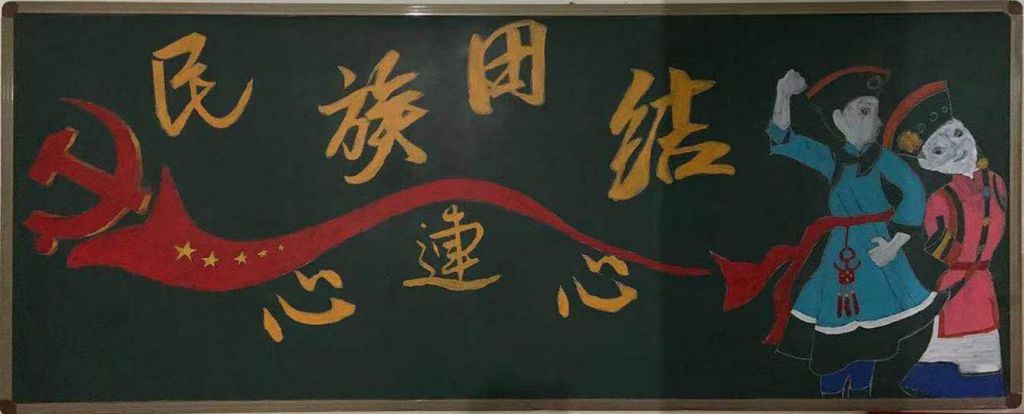 民族团结
心連心